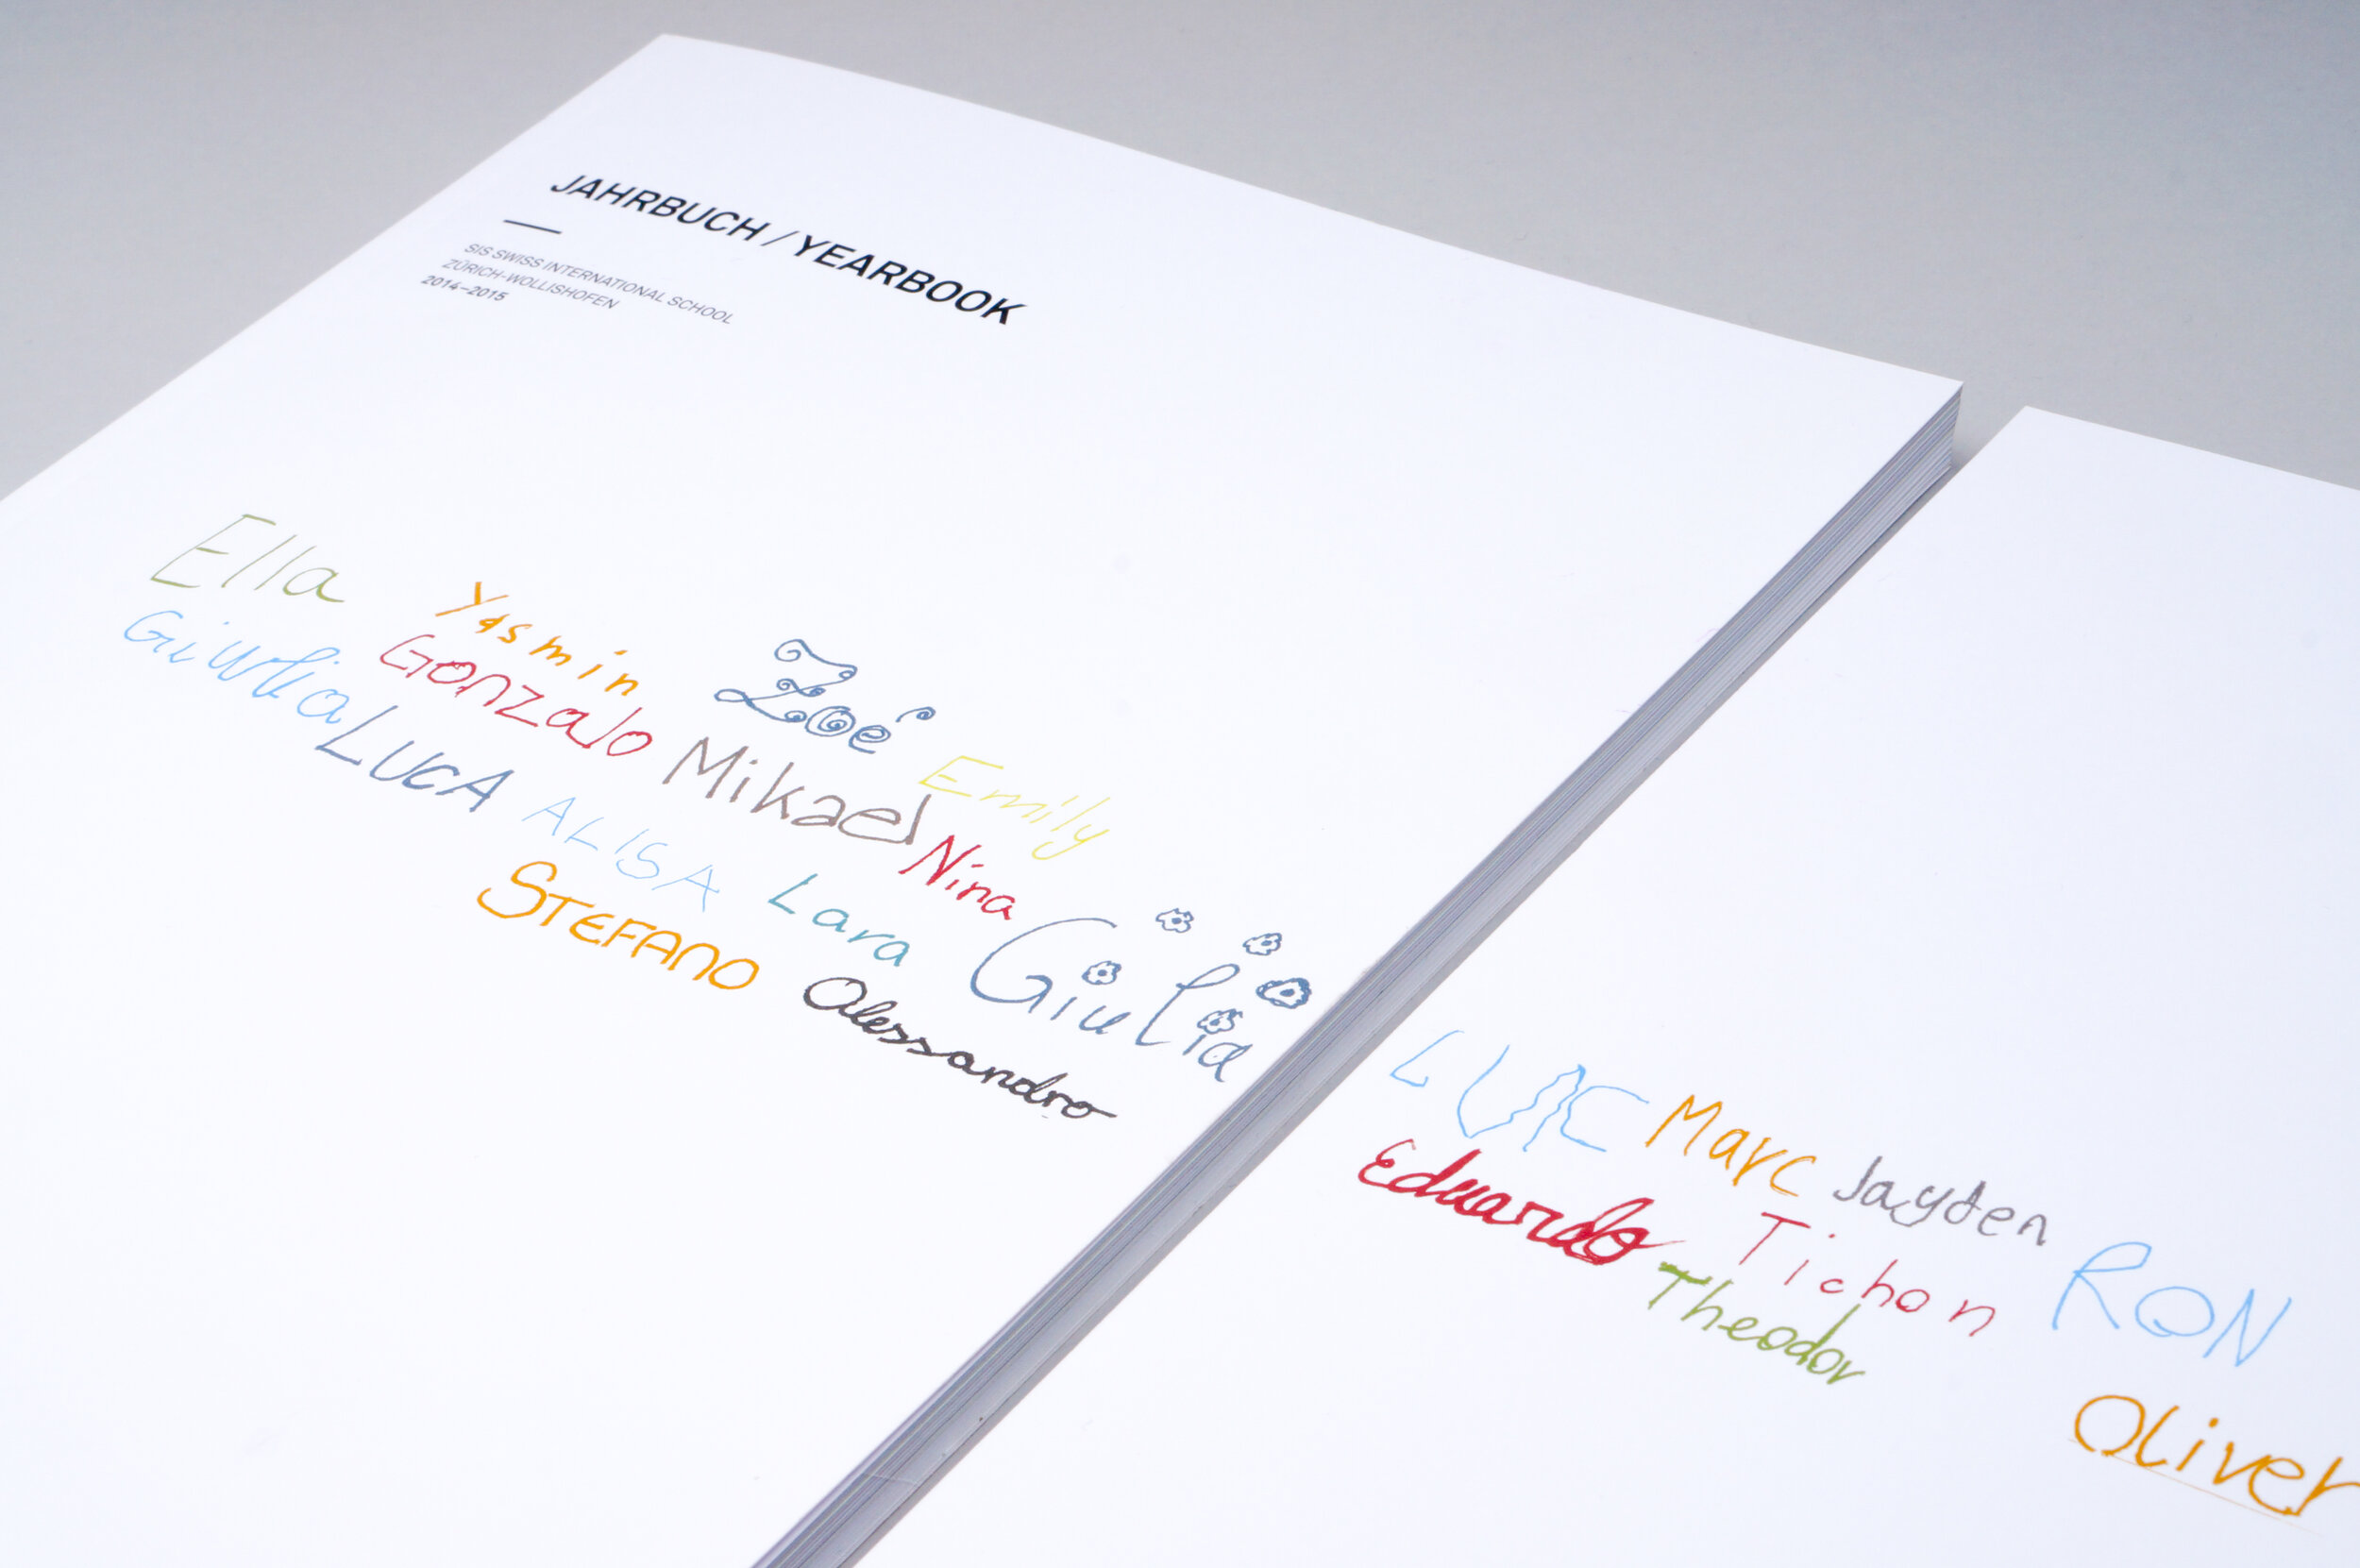 JAHRBUCH / YEARBOOK
SIS SWISS INTERNATIONAL SCHOOL
ZÜRICH-WOLLISHOFEN
2014–2015
Ella Yasmin Zoé Emily
Giulia Gonzalo Mikael Nina
LUCA ALISA Lara Giulia
STEFANO Alessandro
LUIC Marc Jayden RON
Eduardo Tichon
Theodor Oliver